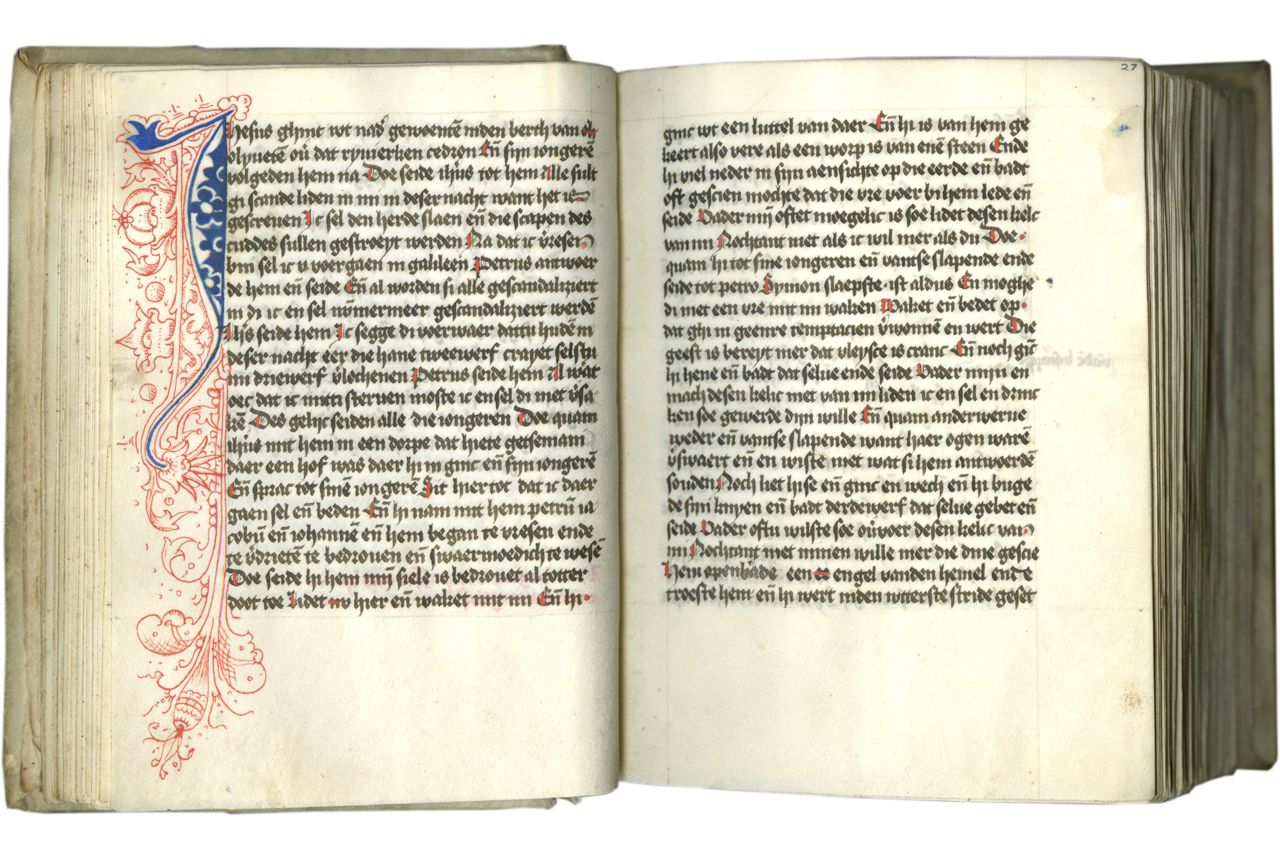 Ihesus ghinc wt nad' gewoente inden berch van ol
olyueten ou' dat rywierken cedron Eñ sijn iongerē
volgeden hem na Doe seide ih'us tot hem Alle sult
gi scande liden in mi in deser nacht want het is
gescreuen Ic sel den herde slaen eñ die scapen des
cuddes sullen gestroeyt werden Na dat ic v'resen
bin sel ic v voergaen in galileen Petrus antwoer
de hem eñ seide Eñ al worden si alle gescandaliziert
in di ic en sel nv̄mermeer gescandaliziert werdē
Ih's seide hem Ic segge di voerwaer dattu huden in
deser nacht eer die hane tweewerf crayet selstu
mi driewerf v'lochenen Petrus seide hem Al wat
oec dat ic mitti steruen moste ic en sel di niet v'sa
kē Des gelijc seiden alle die iongeren Doe quam
ih'us mit hem in een dorpe dat hiete getsemani
daer een hof was daer hi in ginc eñ sijn iongerē
Eñ sprac tot sinē iongerē Sit hier tot dat ic daer
gaen sel eñ beden Eñ hi nam mit hem petrū ia
cobū eñ iohannē eñ hem began te vresen ende
te v'drietē te bedrouen eñ swaermoedich te wesē
Doe seide hi hem mijn siele is bedrouet al totter
doot toe Lidet nv hier eñ waket mit mi Eñ hi
27
ginc wt een luttel van daer Eñ hi is van hem ge
keert also vere als een worp is van enē steen Ende
hi viel neder in sijn aensichte op die eerde eñ badt
oft gescien mochte dat die vre voer bi hem lede eñ
seide Vader mijn oftet moegelic is soe lidet desen kelc
van mi Nochtant niet als ic wil mer als du Doe
quam hi tot sine iongeren eñ vantse slapende ende
seide tot petro Symon slaepste ist aldus En moghe
di niet een vre mit mi waken Waket eñ bedet op
dat ghi in geenre temptacien v'wonnē en wert Die
geest is bereyt mer dat vleysce is cranc Eñ noch ginc
hi hene eñ badt dat selue ende seide Vader mijn en
mach desen kelic niet van mi liden ic en sel en drinc
ken soe gewerde dijn wille Eñ quam anderwerue
weder eñ vantse slapende want haer ogen warē
v'swaert eñ en wiste niet wat si hem antwoerdē
souden Noch liet hise eñ ginc en wech eñ hi buge
de sijn knyen eñ badt derdewerf dat selue gebet eñ
seide Vader oftu wilste soe ou'voer desen kelic van
mi Nochtant niet minen wille mer die dine gescie
Hem openbáde een engel vanden hemel ende
troeste hem eñ hi wert inden wtterste stride geset